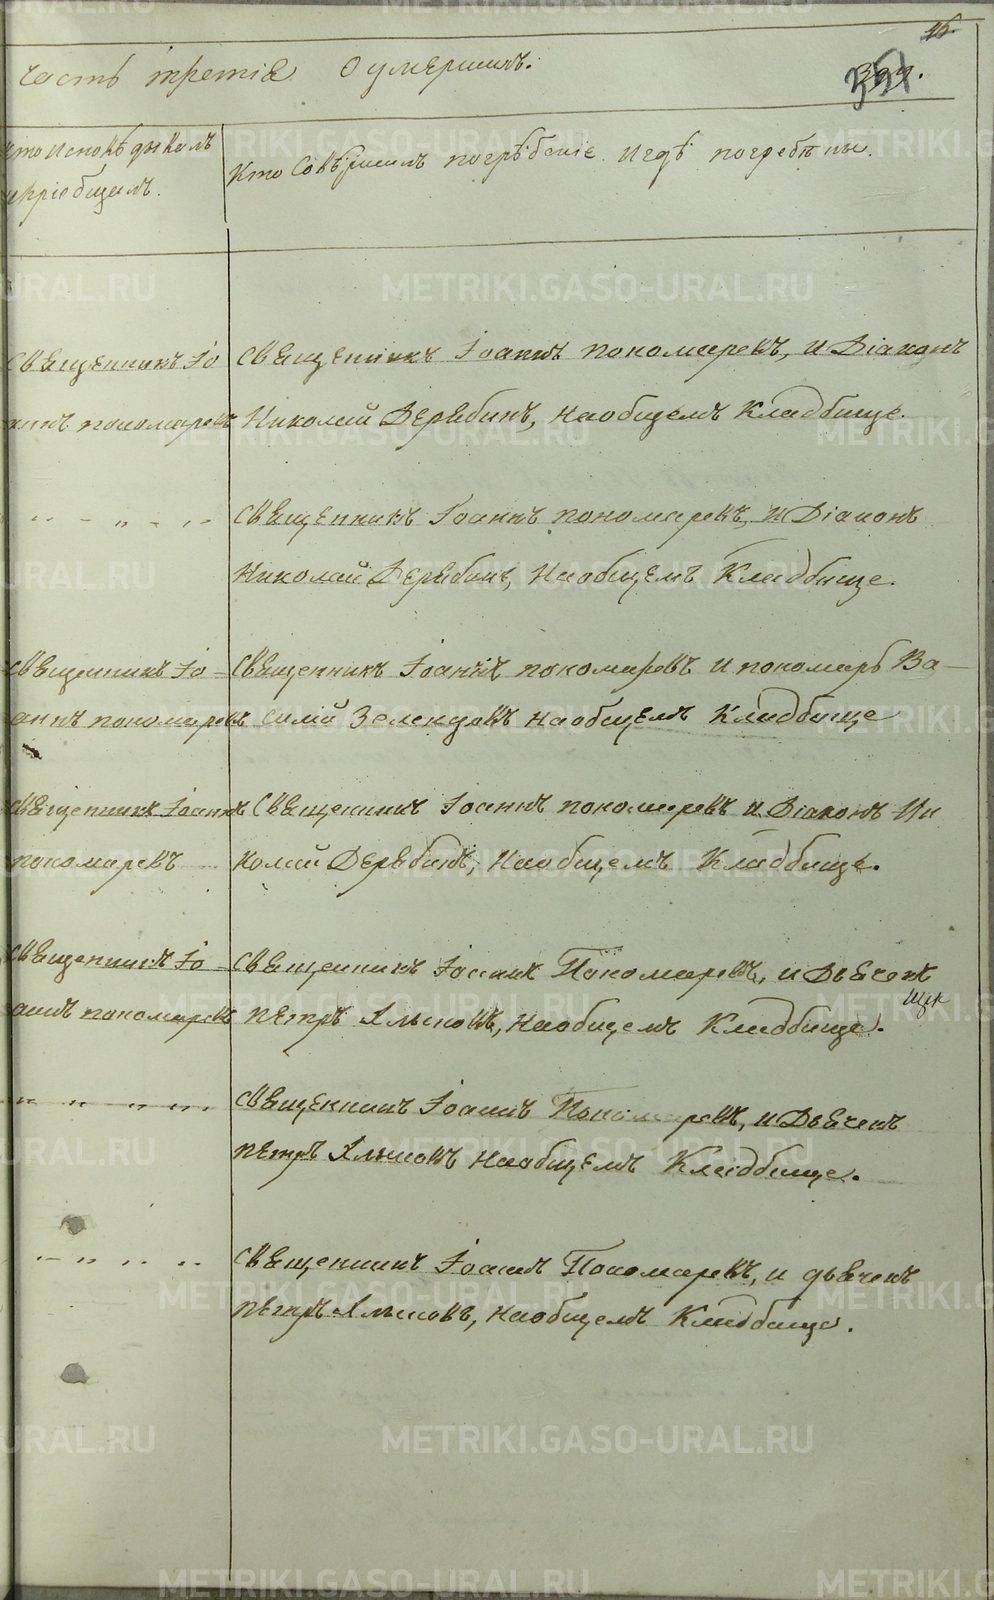 16.
Часть третія О умершихъ.
351
Кто исповѣдывалъ
и пріобщалъ.
Кто Совѣршалъ погрѣбеніе И гдѣ погребены.
Священникъ Іо
аннъ пономаревъ
Священникъ Іоаннъ пономаревъ, и Діаконъ
Николай Дерябинъ, на общемъ Кладбище.
" - " - " "
Священникъ Іоаннъ пономаревъ, и Діаконъ
Николай Дерябинъ, На общемъ Кладбище.
Священникъ Іо=
аннъ пономаревъ
Священникъ Іоаннъ пономаревъ и пономарь Ва-
силій Зеленцовъ на общемъ Кладбище
Священникъ Іоаннъ
пономаревъ
Священникъ Іоаннъ пономаревъ и Діаконъ Ни
колай Дерябинъ, На общемъ Кладбище.
Священникъ Іо-
аннъ пономаревъ
Священникъ Іоаннъ Пономаревъ, и Дьячекъ
пѣтръ, на общемъ Кладбище.
" " " " "
Священникъ Іоаннъ Пономаревъ, и Дьячекъ
пѣтръ на общемъ Кладбище.
" - " " " "
Священникъ Іоаннъ Пономаревъ, и дьячекъ
пѣтръ, на общемъ Кладбище.
METRIKI.GASO-URAL.RU